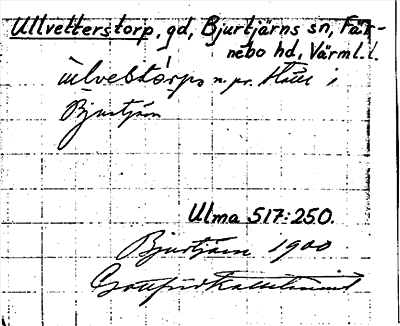 Ullvetterstorp, gd, Bjurtjärns sn, Fär-
nebo hd, Värml. l.
ùlvestórps n. pr. i
Bjurtjärn
Ulma 517:250.
Bjurtjärn 1900
Gottfrid Kallstenius